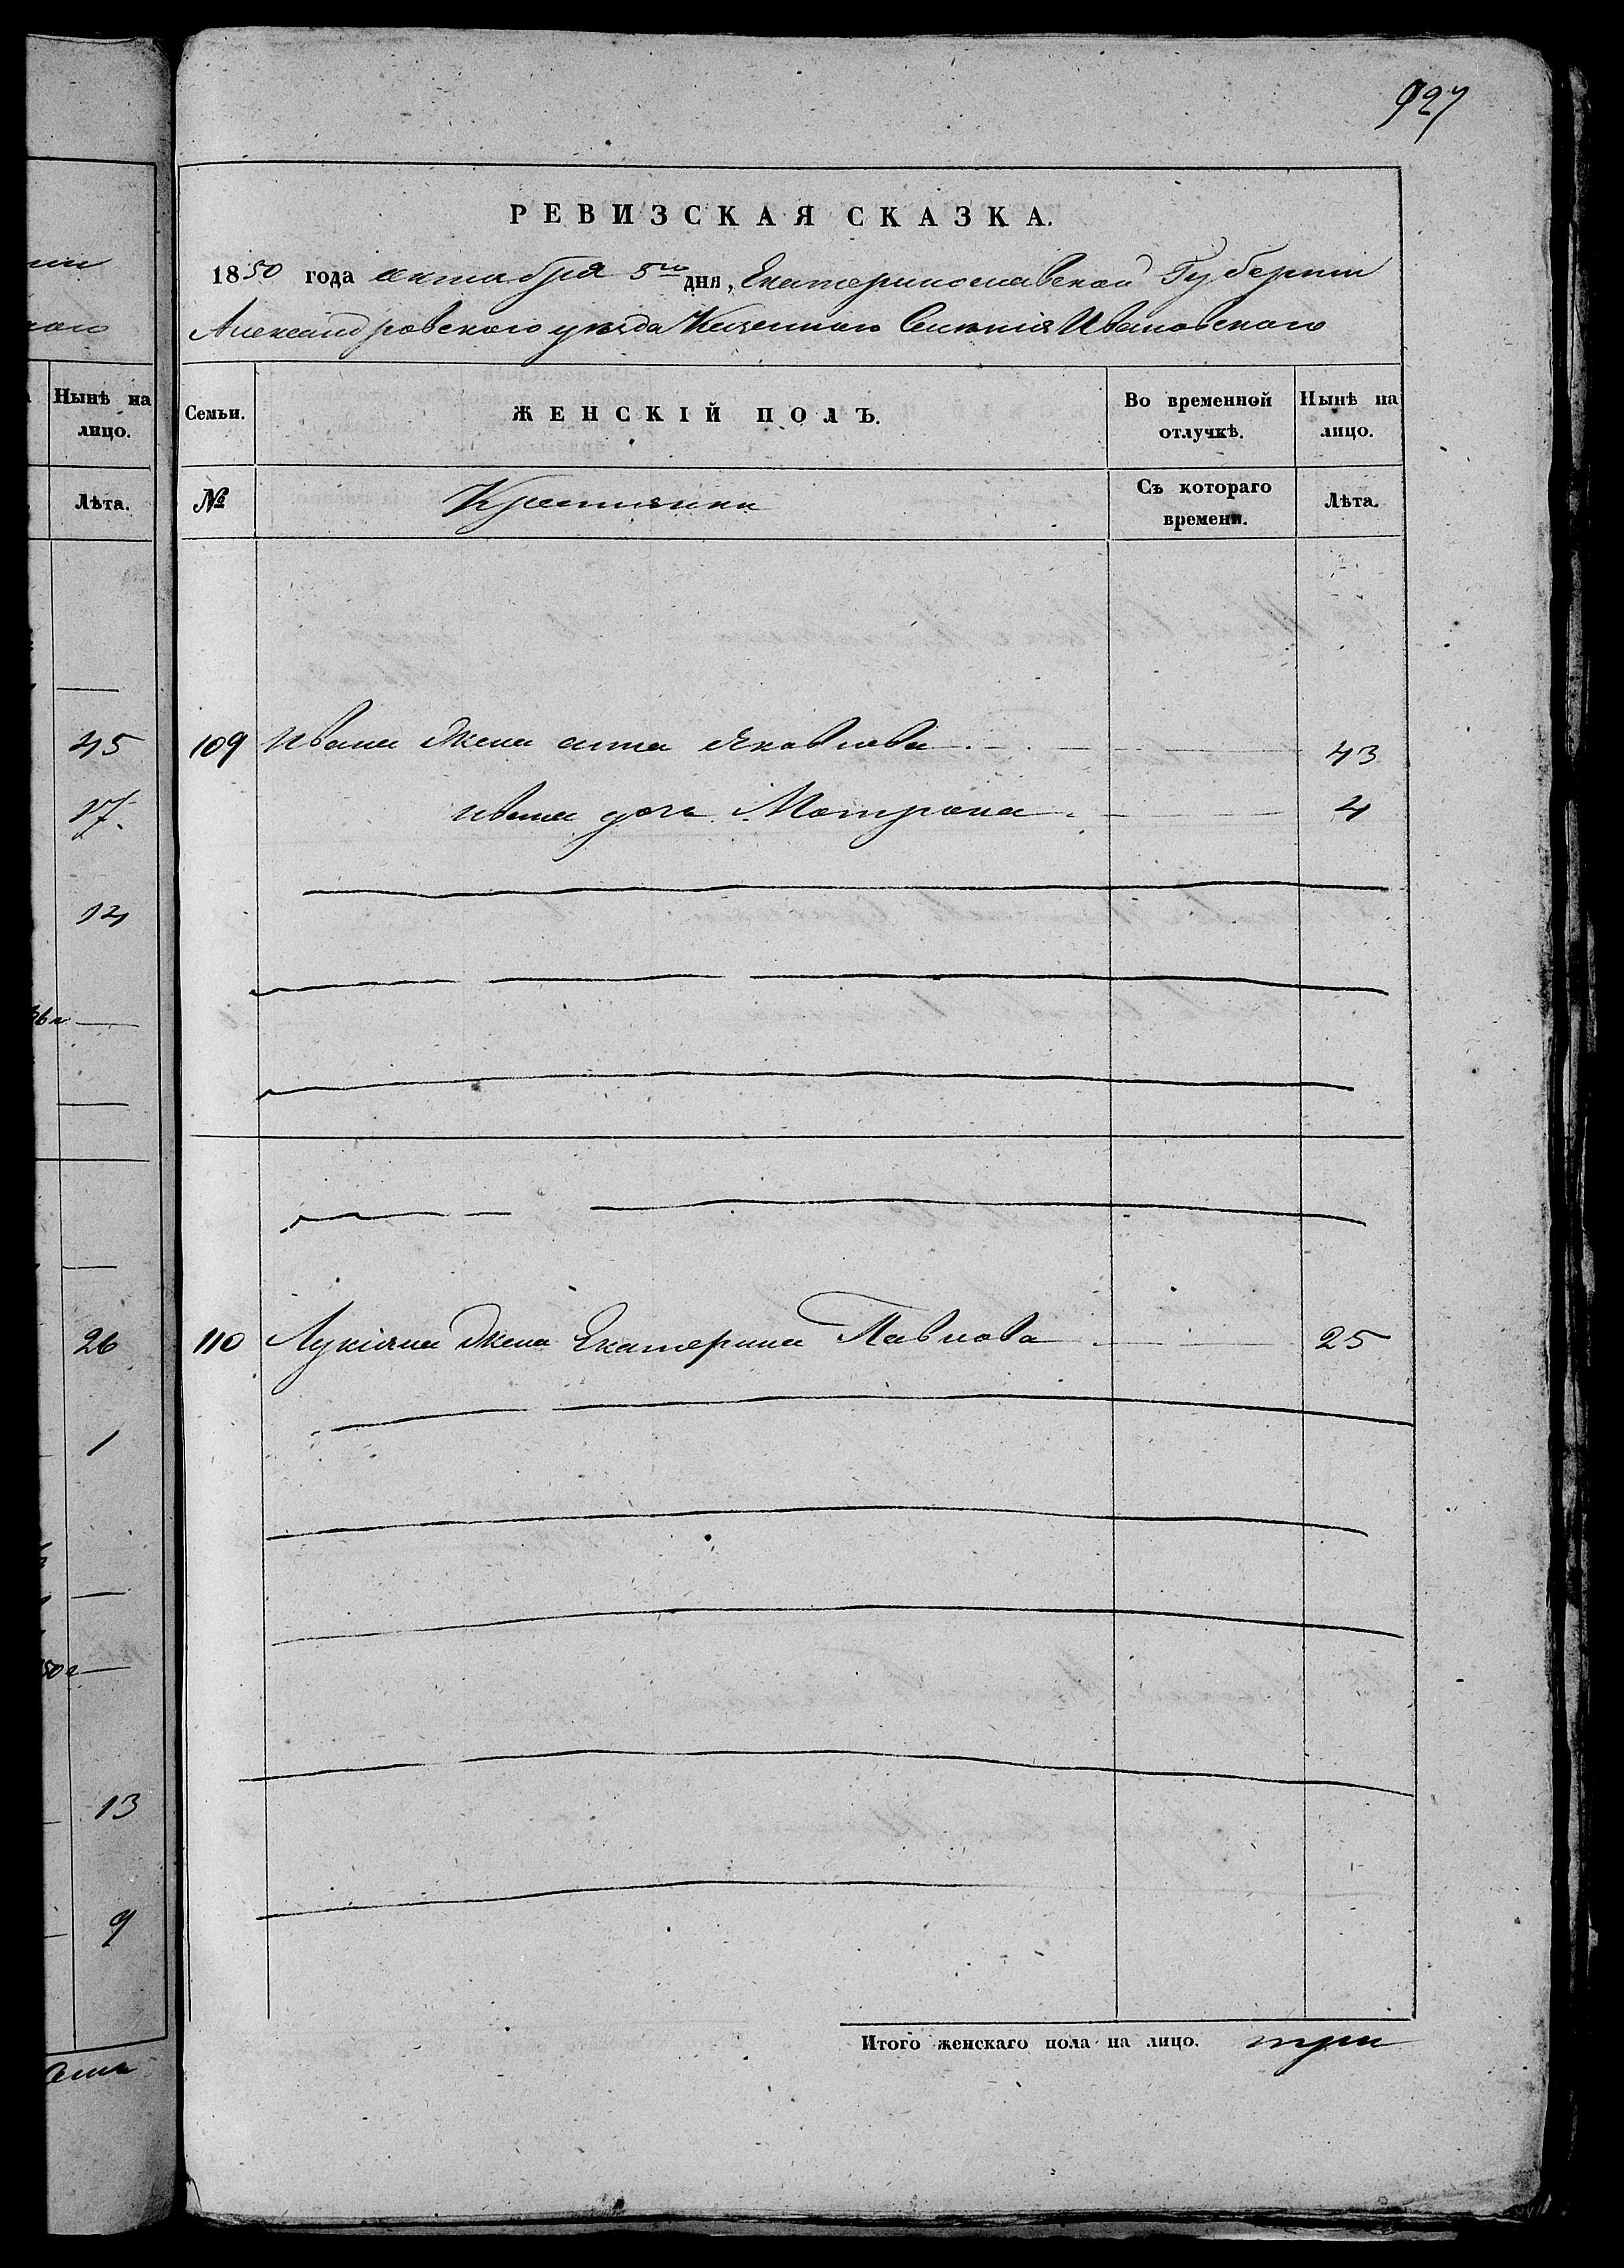 927
РЕВИЗСКАЯ СКАЗКА.
1850 года октября 5го дня, Екатеринославской Губернiи
Александровского уѣзда Казенного Селенiя Ивановского
Нынѣ на лицо.
Семьи.
ЖЕНСКIЙ ПОЛЪ.
Во временной отлучкѣ.
Нынѣ на лицо.
Лѣта.
№
Крестьянки
Съ котораго времени.
Лѣта.
45
109 Ивана жена анна Яковлева 43
17
Ивана дочь Матрона 4
12
26
110 Лукiяна жена Екатерина Павлова 25
1
13
9
Итого женскаго пола на лицо. три